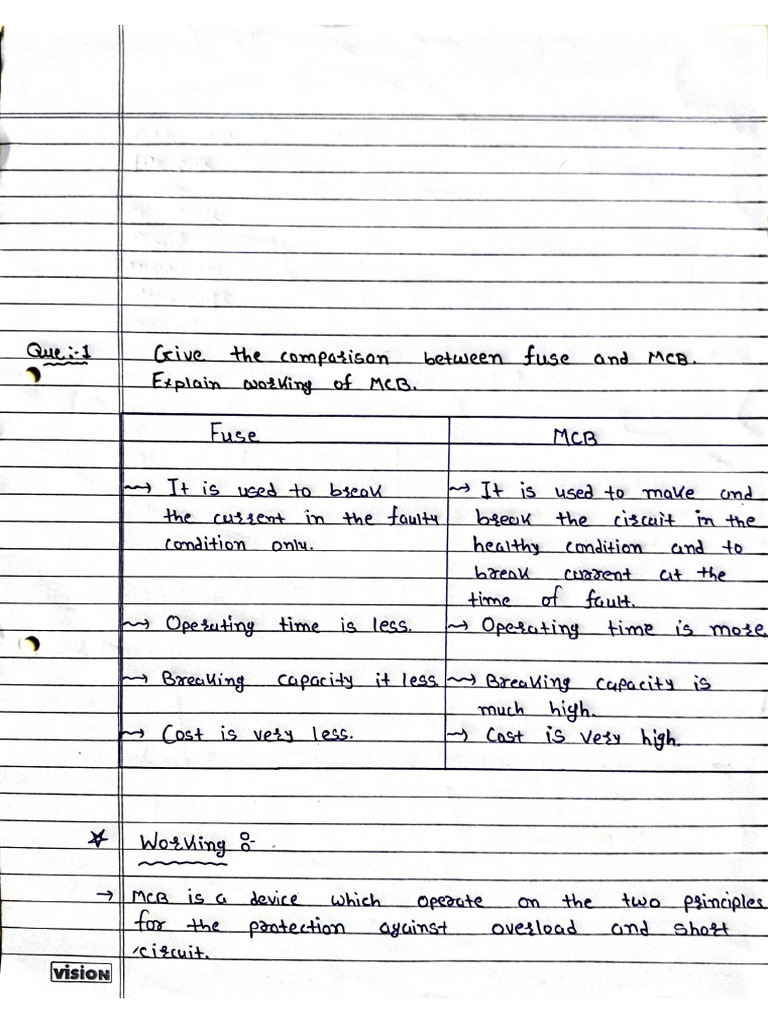 Que:-1 Give the comparison between fuse and MCB.
Explain working of MCB.
Fuse
MCB
~> It is used to break
the current in the faulty
condition only.
~> It is used to make and
break the circuit in the
healthy condition and to
break current at the
time of fault.
~> Operating time is less.
~> Operating time is more
~> Breaking capacity it less
~> Breaking capacity is
much high.
~> Cost is very less.
~> Cost is very high.
☆ Working :-
→ MCB is a device which operate on the two principles
for the protection against overload and short
circuit.
vision